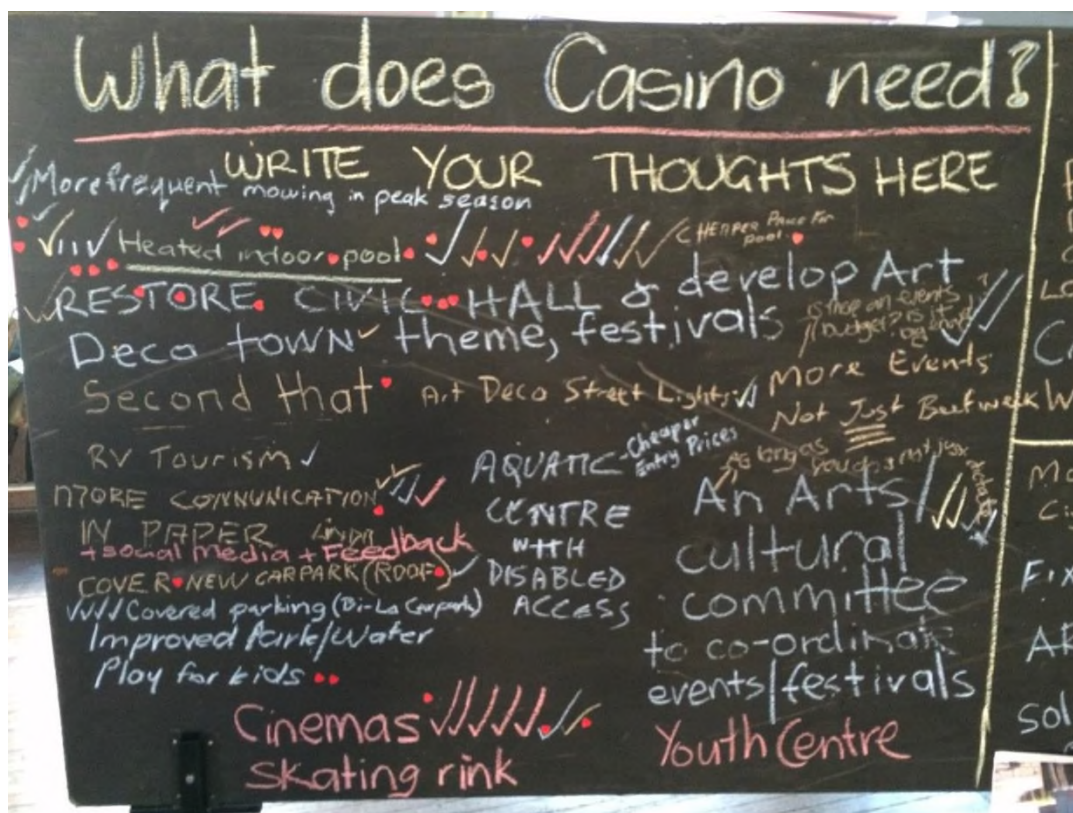 What does Casino need?
WRITE YOUR THOUGHTS HERE
More frequent mowing in peak season
Heated indoor pool
CHEAPER PRICE FOR
pool
RESTORE CIVIC HALL & develop Art
Deco TOWN theme, festivals
is there an events
budget? is it
big enough
Second that
Art Deco Street Lights
More Events
Not Just Beef week
RV Tourism
MORE COMMUNICATION
IN PAPER
+ social media + Feedback
COVER NEW CARPARK (ROOF)
Covered parking (Bi-Lo Carpark)
Improved Park/Water
Play for kids
AQUATIC - Cheaper
Entry Prices
CENTRE
WITH
DISABLED
ACCESS
As long as
you do not just
An Arts/
cultural
committee
to co-ordinate
events/festivals
Cinemas
Skating rink
Youth Centre